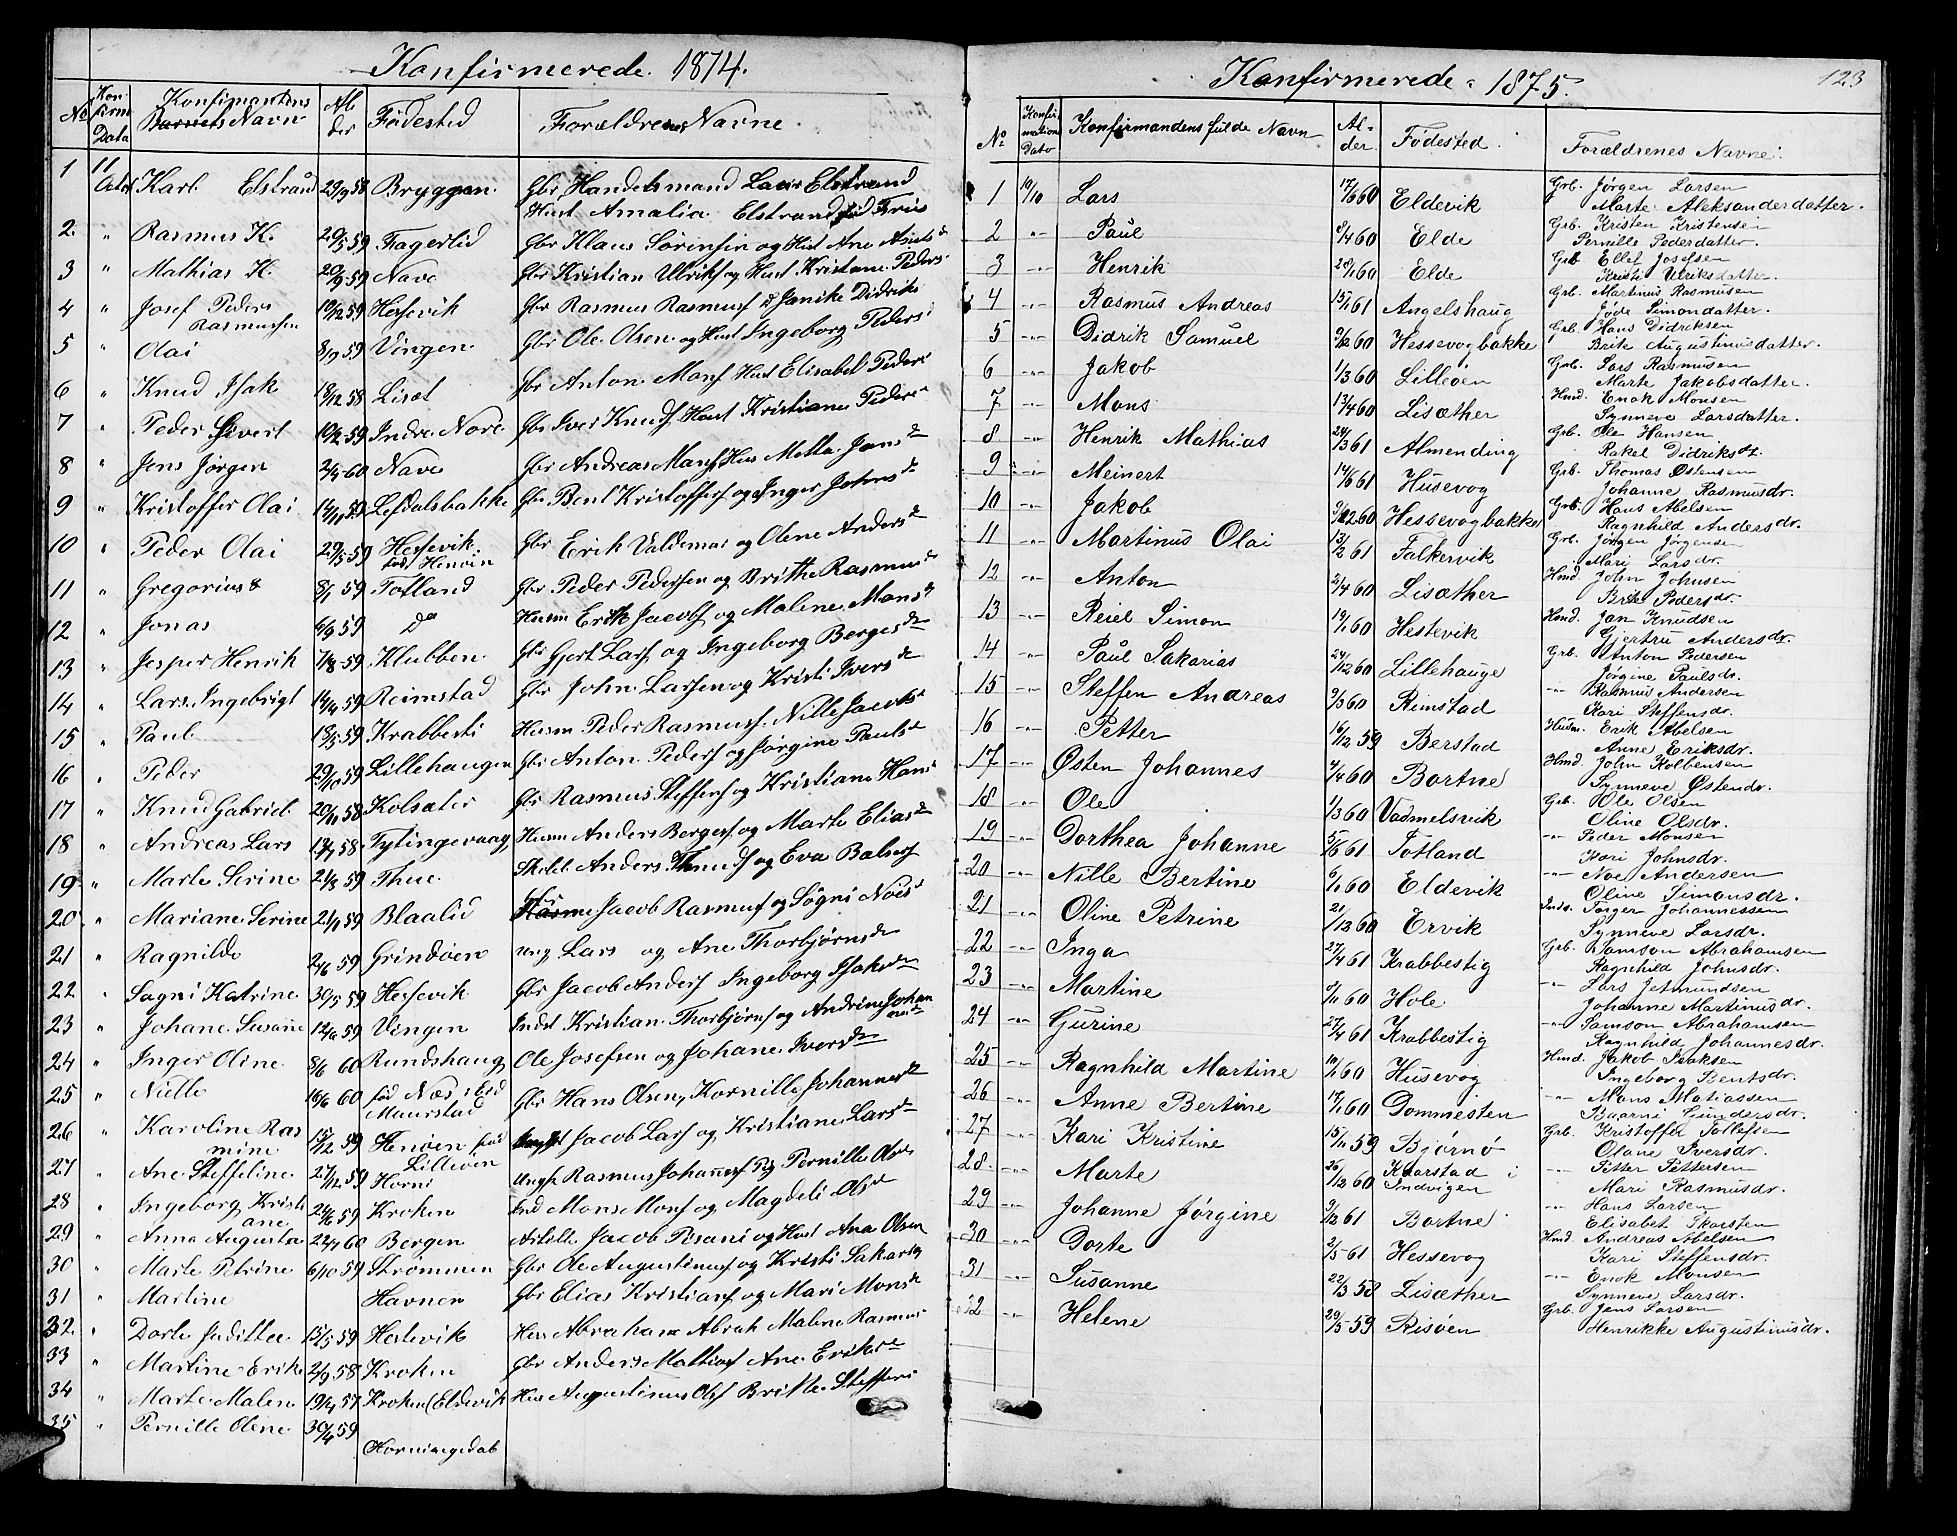 Konfirmerede. 1874.
No Konfirm Dato Konfirmantens Navn Alder Fødested Forældrenes Navne.
1 11 Octob Karl Elstrand 29/9 58 Bryggen. Gbr Handelsmand Lars Elstrand
Hust Amalia Elstrand fød Friis
2. " Rasmus K. 20/5 59 Fagerlid Gbr Klaus Sørensen og Hust Ane
3 " Mathias K. 20/9 59 Nave Gbr Kristian Ulriks og Hust Kristane Peders
4 " Josef Peder 10/12 59 Hessevik Gbr Rasmus Rasmuss Janike Didriks
Rasmussen
5 " Olai 8/9 59 Vingen Gbr Ole Olsen og Hust Ingeborg Peders
6 " Knud Isak 19/12 58 Lisæt Gbr Anton Mons Hust Elisabet Peders
7 " Peder Sivert 10/2 59 Indre Nore Gbr Iver Knuds Hust Kristiane Peders
8 " Jens Jørgen 2/4 60 Nave Gbr Andreas Hus Mette Jans
9 " Kristoffer Olai 14/11 59 Lefdalsbakke Gbr Bent Kristoffers og Inger Johns
10 " Peder Olai 29/5 59 Hessevik Gbr Erik Valdemar og Olene Anders
fød Henøen
11 " Gregorius 8/1 59 Totland Gbr Peder Pedersen og Brithe Rasmus
12 " Jonas 6/9 59 Do Husm Erik Jacobs og Malene Mons
13 " Jesper Henrik 7/8 59 Klubben Gbr Gjert Lars og Ingeborg Berges
14 " Lars Ingebrigt 14/4 59 Reimstad Gbr John Larsen og Kristi Ivers
15 " Paul 18/5 59 Krabbesti Husm Peder Rasmus. Nille Jacobs
16 " Peder 29/10 59 Lillehaugen Gbr Anton Peders og Jørgine Pauls
17 " Knud Gabriel 20/11 58 Kolsæter Gbr Rasmus Steffens og Kristiane Hans
18 " Andreas Lars 13/7 58 Fylingevaag Husm Anders Berges og Marte Elias
19 " Marte Serine 21/3 59 Thue Anders og Eva Balsers
20 " Mariane Serine 21/9 59 Blaalid Jacob Rasmus og Søgni Noes
21 " Ragnilde 24/6 59 Grindøen ung Lars og Ane Thorbjørns
22 " Søgni Katrine 30/5 59 Hessevik Gbr Jacob Anders Ingeborg Isaks
23 " Johane Susanne 12/10 59 Vingen Indst Kristian Thorbjørns og Andrine Johan
nes
24 " Inger Oline 8/6 60 Rundshaug Ole Josefsen og Johane Ivers
25 " Nille 16/6 60 fød Næs sted Gbr Hans Olsen, Kornille Johannes
Maurstad
26 " Karoline Ras 15/12 59 Henøen fød Jacob Lars og Kristiane Lars
mine Lilleøen
27 " Ane Steffeline 27/12 59 Horni Ungk Rasmus Johannes Pernille Ols
28 " Ingeborg Kristi 24/6 59 Kroken Ind Mons Mons og Magdeli Ols
ane
29 " Anna Augusta 22/7 60 Bergen Jacob Pisani og Hust Ana Olsen
30 " Marte Petrine 6/10 59 Strømmen Gbr Ole Augustinus og Kristi Sakarias
31 " Martine Havnen Gbr Elias Kristians og Mari Mons
32. " Dorte Judithe 15/5 59 Hestevik Abraham Abrah Malene Rasmus
33 " Martine Erike 2/9 58 Kroken Gbr Anders Mathias Ane Eriks
34 " Marte Malene 19/4 57 Kroken (Eldevik Hus Augustinus Ols Britte Steffens
35 " Pernille Oline 30/4 59
Horningedab
Konfirmerede 1875. 123
No Konfirmations Dato Konfirmandens fulde Navn Alder Fødested. Forældrenes Navne.
1 10/10 Lars 17/6 60 Eldevik Grb. Jørgen Larsen
Marte Aleksanderdatter.
2 " Paul 8/4 60 Elde Grb. Kristen Kristensen
Pernille Pederdatter.
3 " Henrik 28/1 60 Elde Grb. Ellef Josefsen
Kristi Ulriksdatter.
4 " Rasmus Andreas 15/1 61 Angelshaug Grb. Martinus Rasmusen
Jøde Simondatter.
5 " Didrik Samuel 9/12 60 Hessevogbakke Grb. Hans Didriksen
Brite Augustinusdatter.
6 " Jakob 1/3 60 Lilleøen Grb. Lars Rasmusen
Marte Jakobsdatter.
7 " Mons 13/4 60 Lisæther Hmd. Enok Monsen
Synneve Larsdatter.
8 " Henrik Mathias 24/3 61 Almending Grb. Ole Hansen
Rakel Didriksdt.
9 " Meinert 14/6 61 Husevog Grb. Thomas Østensen
Johanne Rasmusdr.
10 " Jakob 9/12 60 Hessevogbakke Grb. Hans Abelsen
Ragnhild Andersdr.
11 " Martinus Olai 13/2 61 Falkervik Grb. Jørgen Jørgensen
Mari Larsdr.
12 " Anton 2/4 60 Lisæther Hmd. John Johnsen
Brite Pedersdr.
13 " Reiel Simon 19/1 60 Hestevik Hmd. Jan Knudsen
Gjertru Andersdr.
14 " Paul Sakarias 24/12 60 Lillehauge Grb. Anton Pedersen
Jørgine Paulsdr.
15 " Steffen Andreas 9/3 60 Rimstad " Rasmus Andersen
Kari Steffensdr.
16 " Petter 16/12 59 Berstad Husm. Erik Abelsen
Anne Eriksdr.
17 " Østen Johannes 4/4 60 Bortne Hmd. John Kolbensen
Synneve Østendr.
18 " Ole 1/3 60 Vadmelsvik Grb. Ole Olsen
Oline Olsdr.
19 " Dorthea Johanne 5/6 61 Totland " Peder Monsen
Kari Johnsdr.
20 " Nille Bertine 6/1 60 Eldevik " Noe Andersen
Oline Simonsdr.
21 " Oline Petrine 21/12 60 Ervik Inds. Torger Johannessen
Synneve Larsdr.
22 " Inga 27/4 61 Krabbestig Grb. Samson Abrahamsen
Ragnhild Johnsdr.
23 " Martine 9/11 60 Hole " Lars Jetmundsen
Johanne Martinusdr.
24 " Gurine 27/4 61 Krabbestig " Samson Abrahamsen
Ragnhild Johannesdr.
25 " Ragnhild Martine 10/1 60 Husevog Hmd. Jakob Isaksen
Ingeborg Bentsdr.
26 " Anne Bertine 17/1 60 Dommesten " Mons Matiassen
Baarni Gundersdr.
27 " Kari Kristine 15/11 59 Bjørnø Grb. Kristoffer Tollefsen
Olane Iversdr.
28. " Marte 26/12 60 Kaarstad i " Petter Pettersen
Indvigen Mari Rasmusdr.
29 " Johanne Jørgine 9/12 61 Bortne " Hans Larsen
Elisabet Skarsten
30 " Dorte 2/5 61 Hessevog Hmd Andreas Abelsen
Kari Steffensdr.
31 " Susanne 22/3 58 Lisæther " Enok Monsen
Synneve Larsdr.
32 " Helene 29/5 59 Risøen Grb. Jens Larsen
Henrikke Augustinusdr.